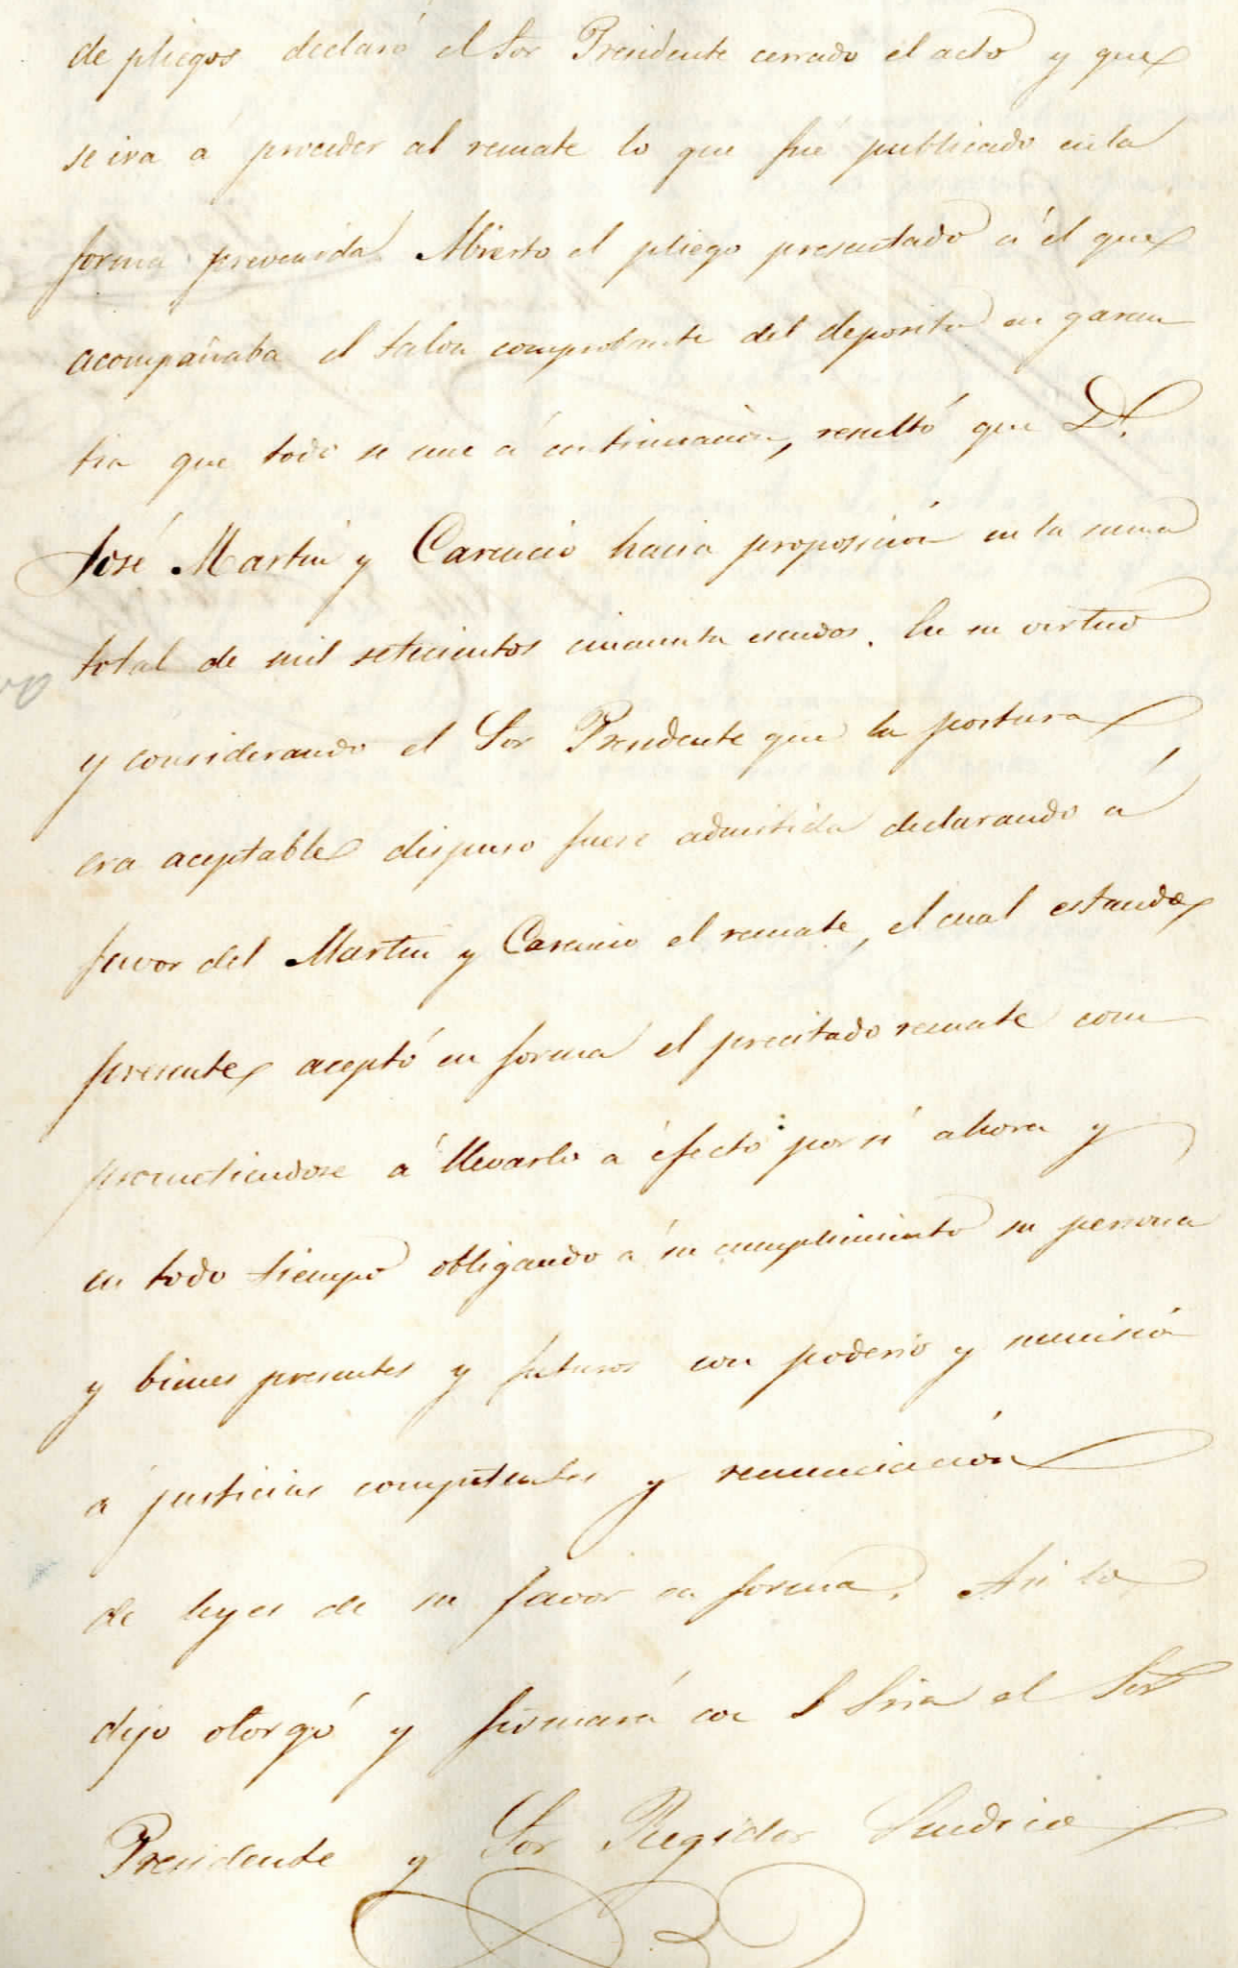 de pliegos declaró el Sor Presidente cerrado el acto y que
se iva á proceder al remate lo que fué publicado en la
forma prevenida. Abierto el pliego presentado á el que
acompañaba el talon comprobante del deposito en garan
tia que todo se une á continuacion, resultó que Dn.
José Martin y Carencio hacia proposición en la suma
total de mil setecientos cincuenta escudos. En su virtud
y considerando el Sor Presidente que la postura
era aceptable dispuso fuese admitida declarando á
favor del Martin y Carencio el remate, el cual estando
presente aceptó en forma el precitado remate com
prometiendose á llevarlo a éfecto por sí ahora y
en todo tiempo obligando á su cumplimiento su persona
y bienes presentes y futuros con poderio y sumisión
á justicias competentes y renunciación
de leyes de su favor en forma. Asi lo
dijo otorgó y firmará con S Sria el Sor
Presidente y Sor Regidor Sindico